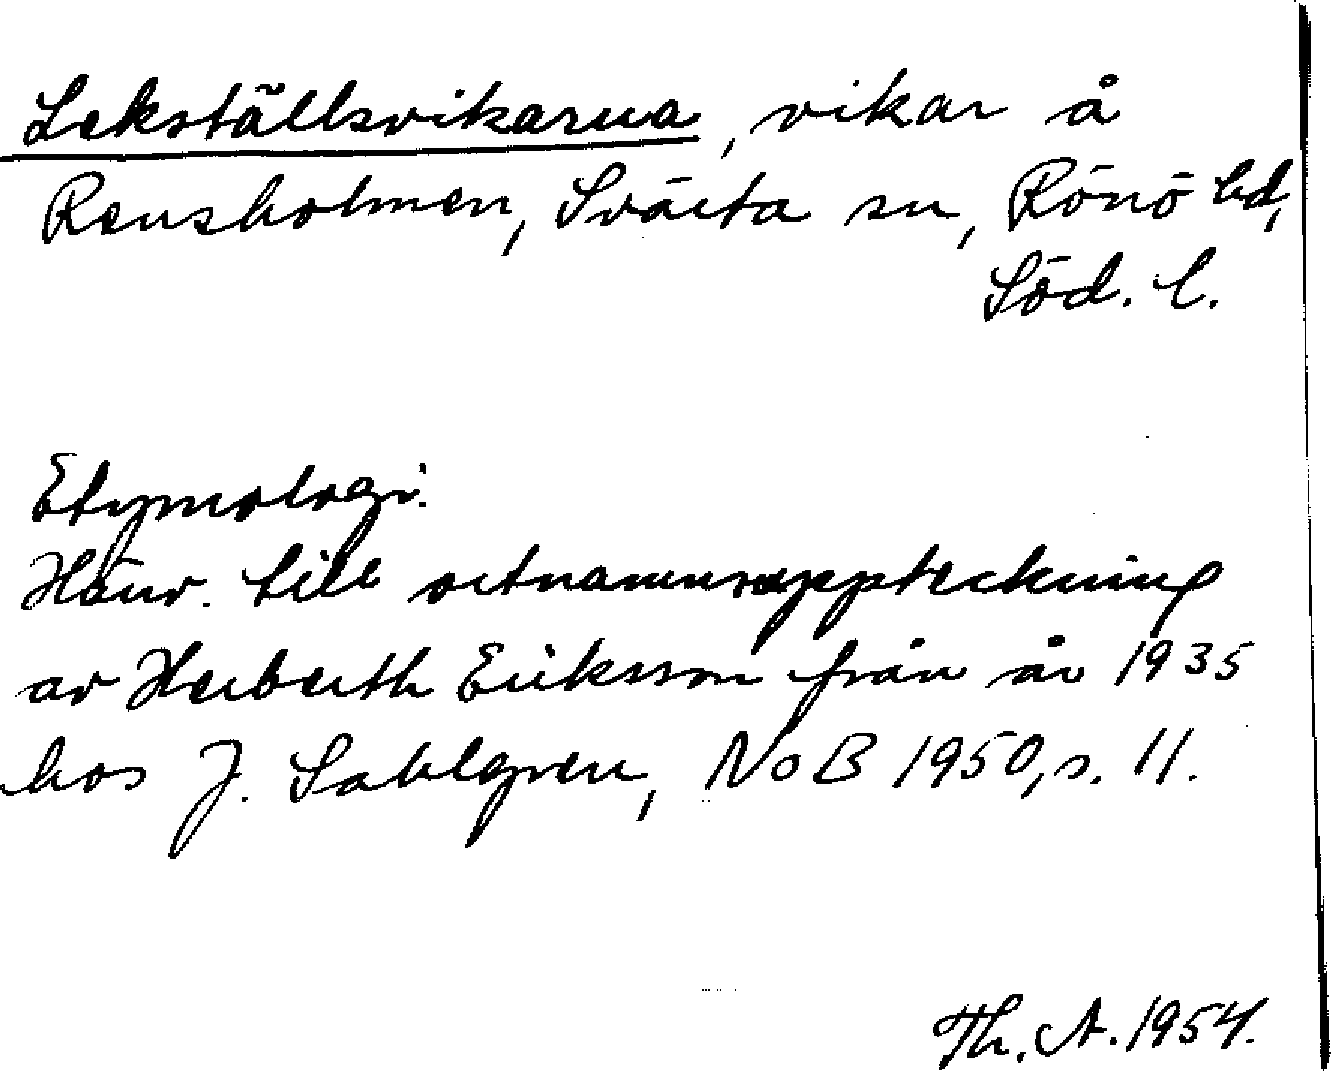 Lekställsvikarna, vikar å
Rensholmen, Svärta sn, Rönö hd,
Söd. l.
Etymologi:
Hänv. till ortnamnsuppteckning
av Herberth Eriksson från år 1935
hos J. Sahlgren, NoB 1950, s. 11.
Th. A. 1954.